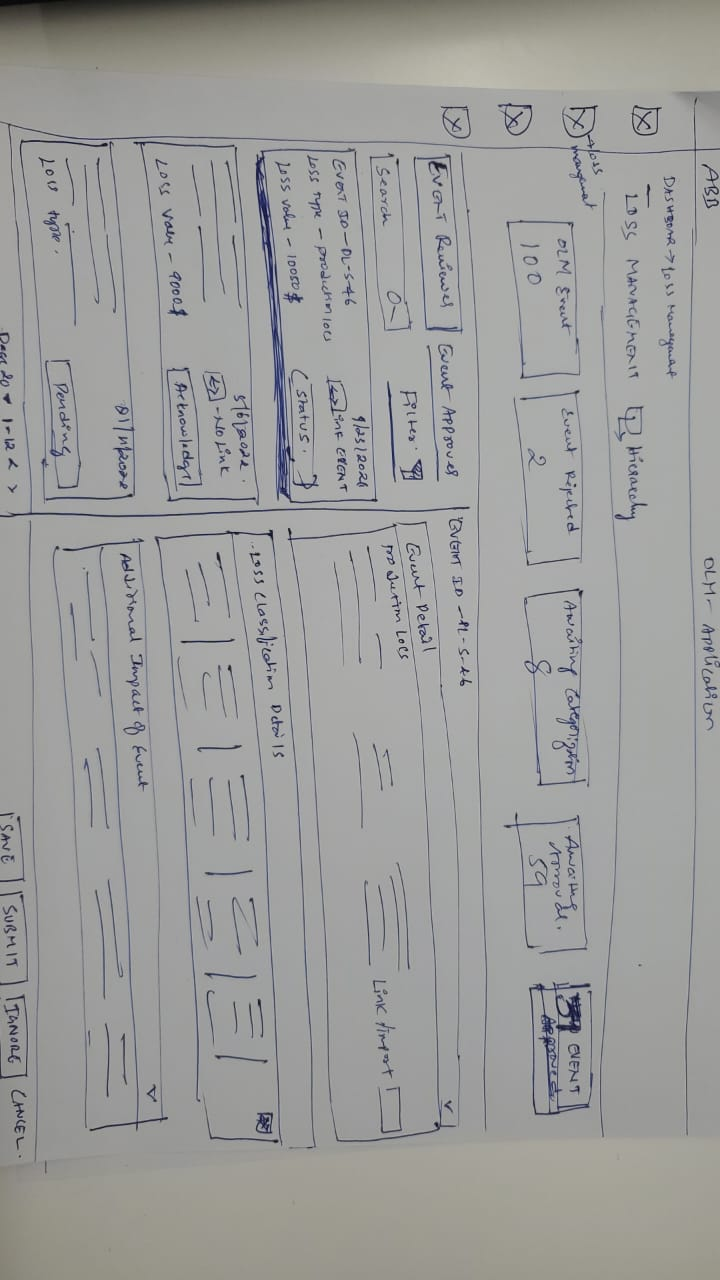 ABB
OLM - Application
DASHBOAR → Loss Management
LOSS MANAGEMENT
Hierarchy
→ Loss
management
OLM Event
100
Event Rejected
2
Awaiting Categorization
8
Awaiting
59
EVENT
APPROVED
Event Reviewer
Event Approver
Search
Filter.
Event ID - PL-S-46
Loss type - production loss
Loss value - 10050$
9/25/2021
LINK EVENT
Status.
5/6/2022.
- No Link
Loss value - 9000$
Acknowledgt
Loss type.
Pending
Page 20 ▾ 1-12 < >
EVENT ID - PL-S-46
Event Detail
Production Loss
Link / import
Loss Classification Details
Additional Impact of Event
SAVE
SUBMIT
IGNORE
CANCEL.